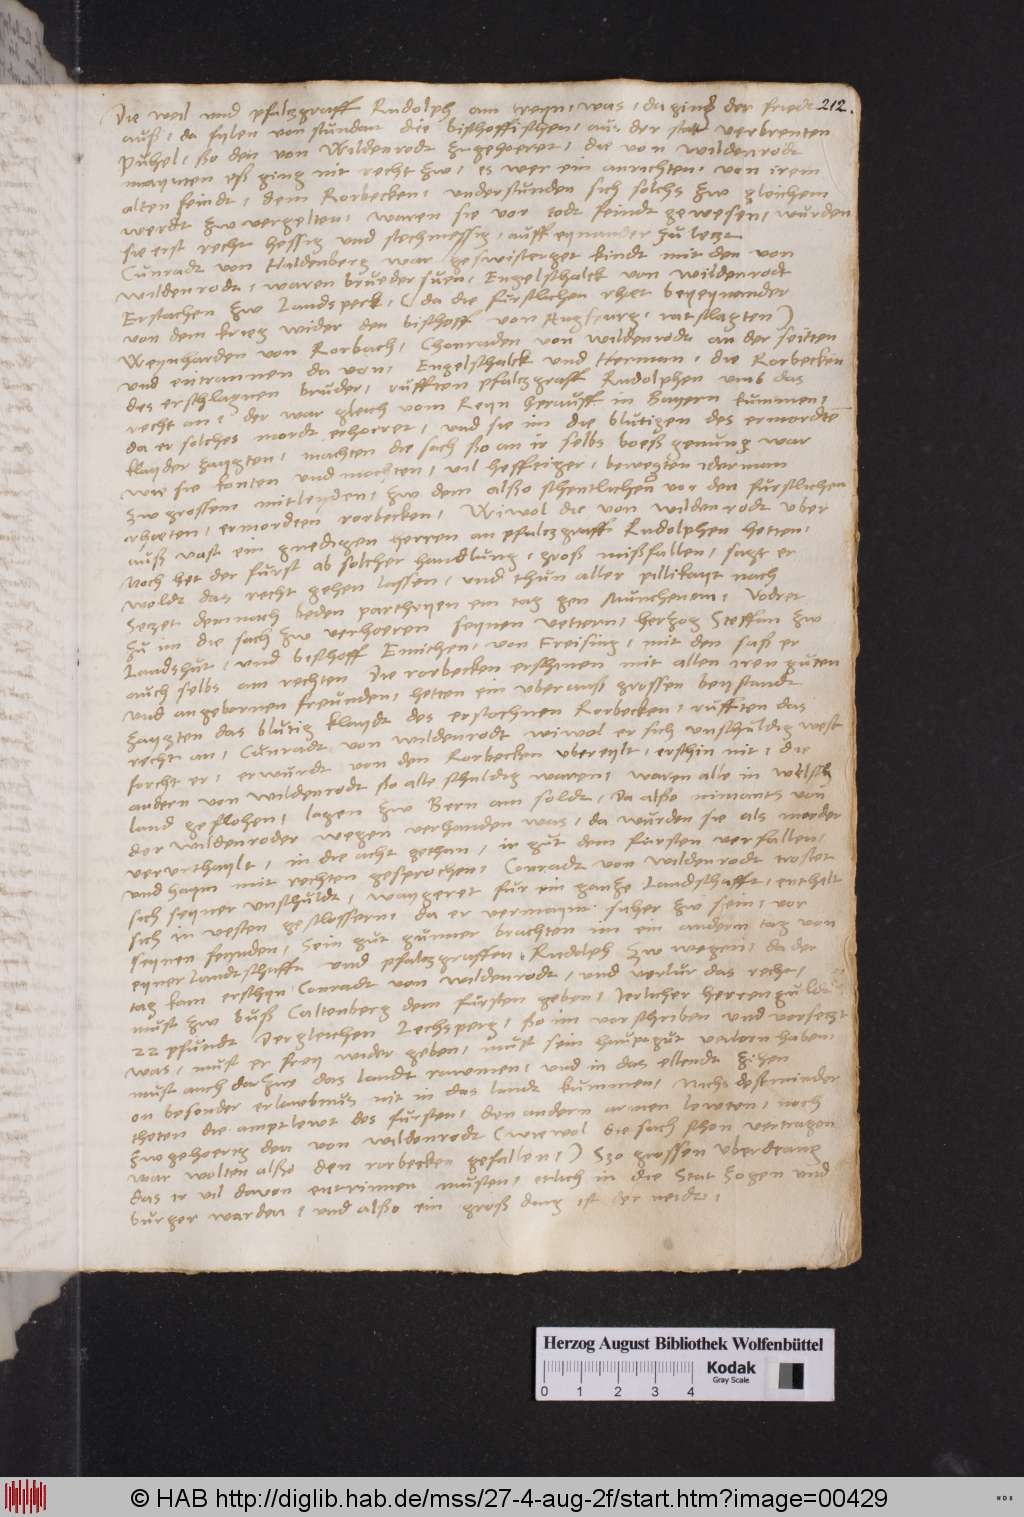 Die weil und pfalzgraff Rudolph am reyn, was, da ging der friedt 212.
auß, da fylen von stundan die bischoffischen, aus der stat verbrenten
Puhel, ßo den von Wildenrodt zugehoeret, die von wildenrodt
maynten eß ging nit recht zw, es wer ein anrichten, von irem
alten feindt, dem Rorbecken, understunden sich solchs zw gleichem
werdt zw vergelten, waren sie vor todt feindt gewesen, wurden
sie erst recht hessig und stechmessig, auff eynander zu letzt
Cunradt von Haldenberg war geswisterget kindt mit den von
wildenrodt, waren brueder suen, Engelschalck von wildenrodt
Erstachen zw Landspeck, (da die fürstlichen rhaet beyeynander
von dem krieg wider den bischoff von Augspurg, ratslagten)
Weynharden von Rorbach, Chonraden von wildenrodt an der seitten
und entrannen da von, Engelschalck und Herman, die Rorbecken
des erschlagnen bruder, rufften pfalczgraff Rudolphen umb das
recht an, der war gleich vom Reyn herauff in Bayern kummen,
da er solches mordt erhoeret, und sie im die blutigen des ermordte
klayder zaygten, machten die sach ßo an ir selbs boeß genung war
wie sie konten und mochten, vil hefftiger, bewegten iderman
zw grossem mitleyden, zw dem alßo schentlichen vor den furstlichen
rhaeten, ermordten rorbecken, Wiwol die von wildenrodt uber
auß vast ein gnedigen herren an pfalczgraff Rudolphen hetten,
Noch het der furst ab solcher handlung, groß mißfallen, sagt er
woldt das recht gehen lassen, und thun aller pillikayt nach
Seczet demnach beden partheyen ein tag gen Munchen em, Vodret
zu im die sach zw verhoeren seynen vettern, herhzog Steffan zw
Landshut, und bischoff Emichen, von Freising, mit den saß er
auch selbs am rechten Die rorbecken erschinen mit allen iren guten
und angebornen freunden, hetten ein uberauß grossen beystandt
zaygten das blutig klaydt des erstochnen Rorbecken, rufften das
recht an, Cunradt von wildenrodt wiwol er sich unschuldig west
forcht er, er wurdt von den Rorbecken ubereylt, erschin nit, die
andern von wildenrodt ßo alle schuldig waren, waren alle in welsch
land geflohen, lagen zw Bern am soldt, Da alßo nimants von
der wildenroder wegen verhanden was, da wurden sie als morder
verurthaylt, in die acht gethan, ir gut dem fürsten verfallen,
und haym mit rechten gesprochen, Conradt von wildenrodt trostet
sich seyner unschuldt, waygeret für ein ganze Landschafft, enthilt
sich in vesten geschlossern, da er vermaynt sicher zw sein, vor
seynen feynden, Sein gut gunner brachten im ein andern tag von
eyner landtschafft und pfalczgraffen Rudolph zw wegen, da der
tag kam erschyn Conradt von wildenrodt, und verlur das recht,
must zw buß Caltenberg dem fürsten geben, Jerlicher herren guldt
22 pfundt Dergleichen Lechsperg, ßo im vorschriben und versetzt
was, must er frey wider geben, must sein hauptgut verlorn haben
must auch darzw das landt rawmen, und in das ellendt zihen
on besonder erlawbnus nit in das landt kummen, Nichs destminder
theten die amptlewt des fursten, den andern armen lewten, noch
zwgehoerig den von wildenrodt (wiewol die sach schon vertragen
war wolten alßo den rorbecken gefallen,) Szo grossen uberdrang
das ir vil davon entrinnen musten, etlich in die Stat zogen und
burger warden, und alßo ein groß ding ist der neidt,
Herzog August Bibliothek Wolfenbüttel
Kodak
Gray Scale
0 1 2 3 4
© HAB http://diglib.hab.de/mss/27-4-aug-2f/start.htm?image=00429